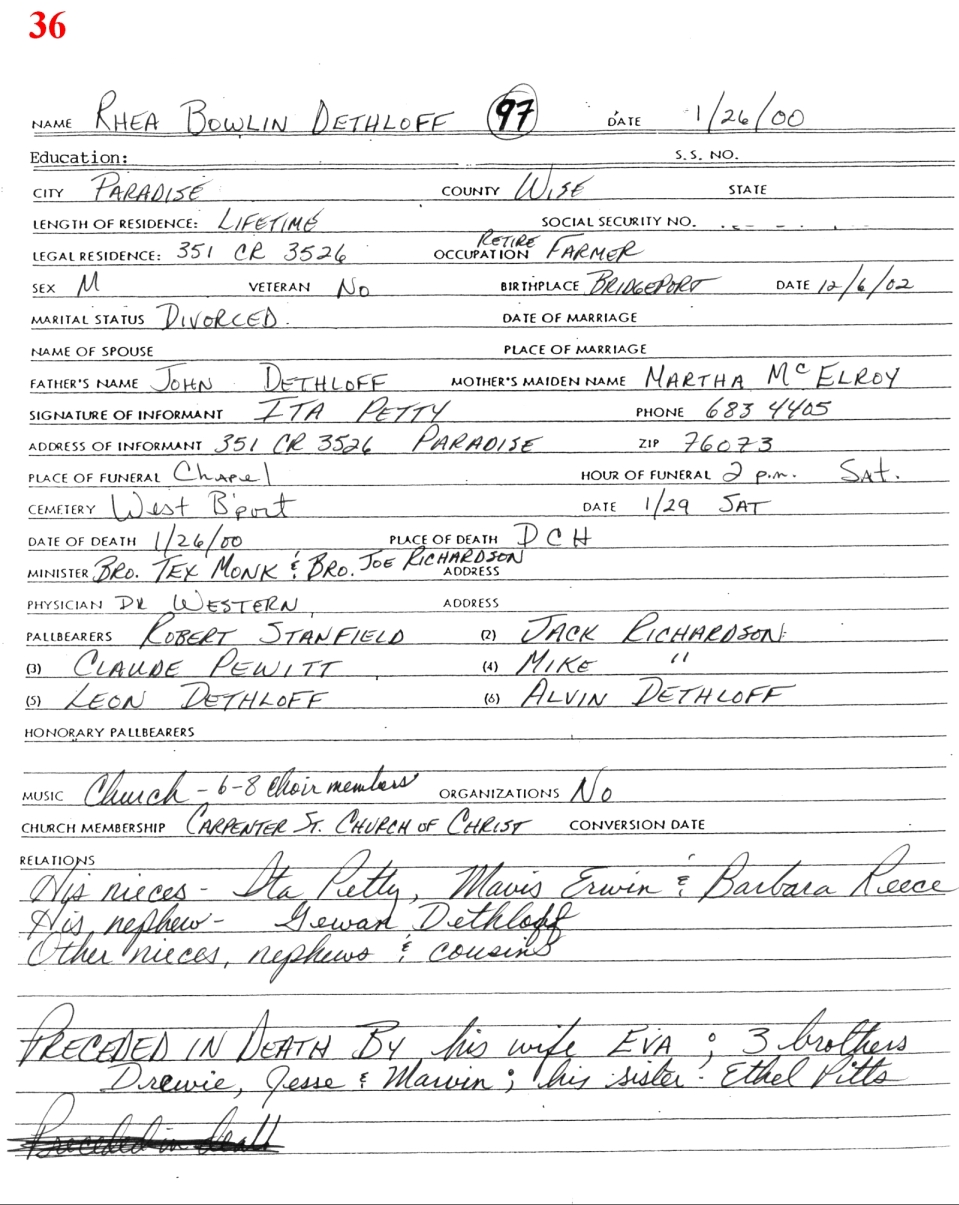 36
NAME RHEA BOWLIN DETHLOFF 97 DATE 1/26/00
Education: S.S. NO.
CITY PARADISE COUNTY WISE STATE
LENGTH OF RESIDENCE: LIFETIME SOCIAL SECURITY NO.
LEGAL RESIDENCE: 351 CR 3526 OCCUPATION RETIRE FARMER
SEX M VETERAN No BIRTHPLACE BRIDGEPORT DATE 12/6/02
MARITAL STATUS DIVORCED. DATE OF MARRIAGE
NAME OF SPOUSE PLACE OF MARRIAGE
FATHER'S NAME JOHN DETHLOFF MOTHER'S MAIDEN NAME MARTHA McELROY
SIGNATURE OF INFORMANT ITA PETTY PHONE 683 4405
ADDRESS OF INFORMANT 351 CR 3526 PARADISE ZIP 76073
PLACE OF FUNERAL Chapel HOUR OF FUNERAL 2 p.m. Sat.
CEMETERY West B'port DATE 1/29 SAT
DATE OF DEATH 1/26/00 PLACE OF DEATH DCH
MINISTER BRO. TEX MONK & BRO. JOE RICHARDSON ADDRESS
PHYSICIAN DR WESTERN ADDRESS
PALLBEARERS ROBERT STANFIELD (2) JACK RICHARDSON
(3) CLAUDE PEWITT (4) MIKE "
(5) LEON DETHLOFF (6) ALVIN DETHLOFF
HONORARY PALLBEARERS
MUSIC Church - 6-8 Choir members ORGANIZATIONS No
CHURCH MEMBERSHIP CARPENTER ST. CHURCH OF CHRIST CONVERSION DATE
RELATIONS
His nieces - Ita Petty, Mavis Erwin & Barbara Reece
His nephew - Gewan Dethloff
Other nieces, nephews & cousins
PRECEDED IN DEATH BY his wife EVA; 3 brothers
Drewie, Jesse & Marvin; his sister - Ethel Pitts
Preceded in death